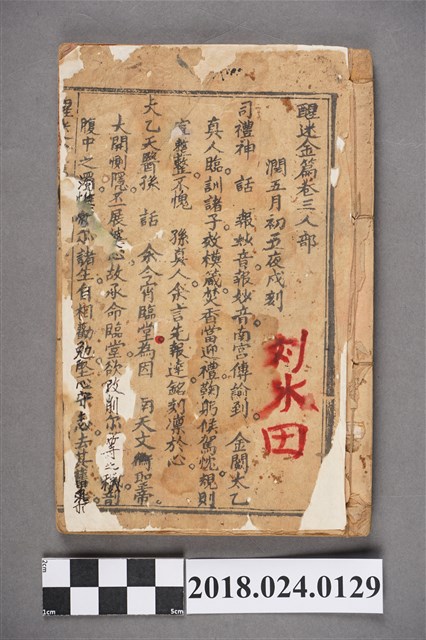 醒迷金篇卷三人部
閏五月初五夜戌刻
司禮神 話 報妙音報妙音南宮傳諭到 金闕太乙
真人臨訓諸子效模箴焚香當迎禮鞠躬候駕恍規則
宜整整不愧 孫真人余言先報達銘刻凜於心
太乙天醫孫 話 余今宵臨堂為因 南天文衡聖帝
大開惻隱丕展婆心故承命臨堂欲改削爾等之
腹中之濁爾諸生自相勸勉堅心守志去其舊
醒
刘水田
2cm
1cm
5cm
2018.024.0129